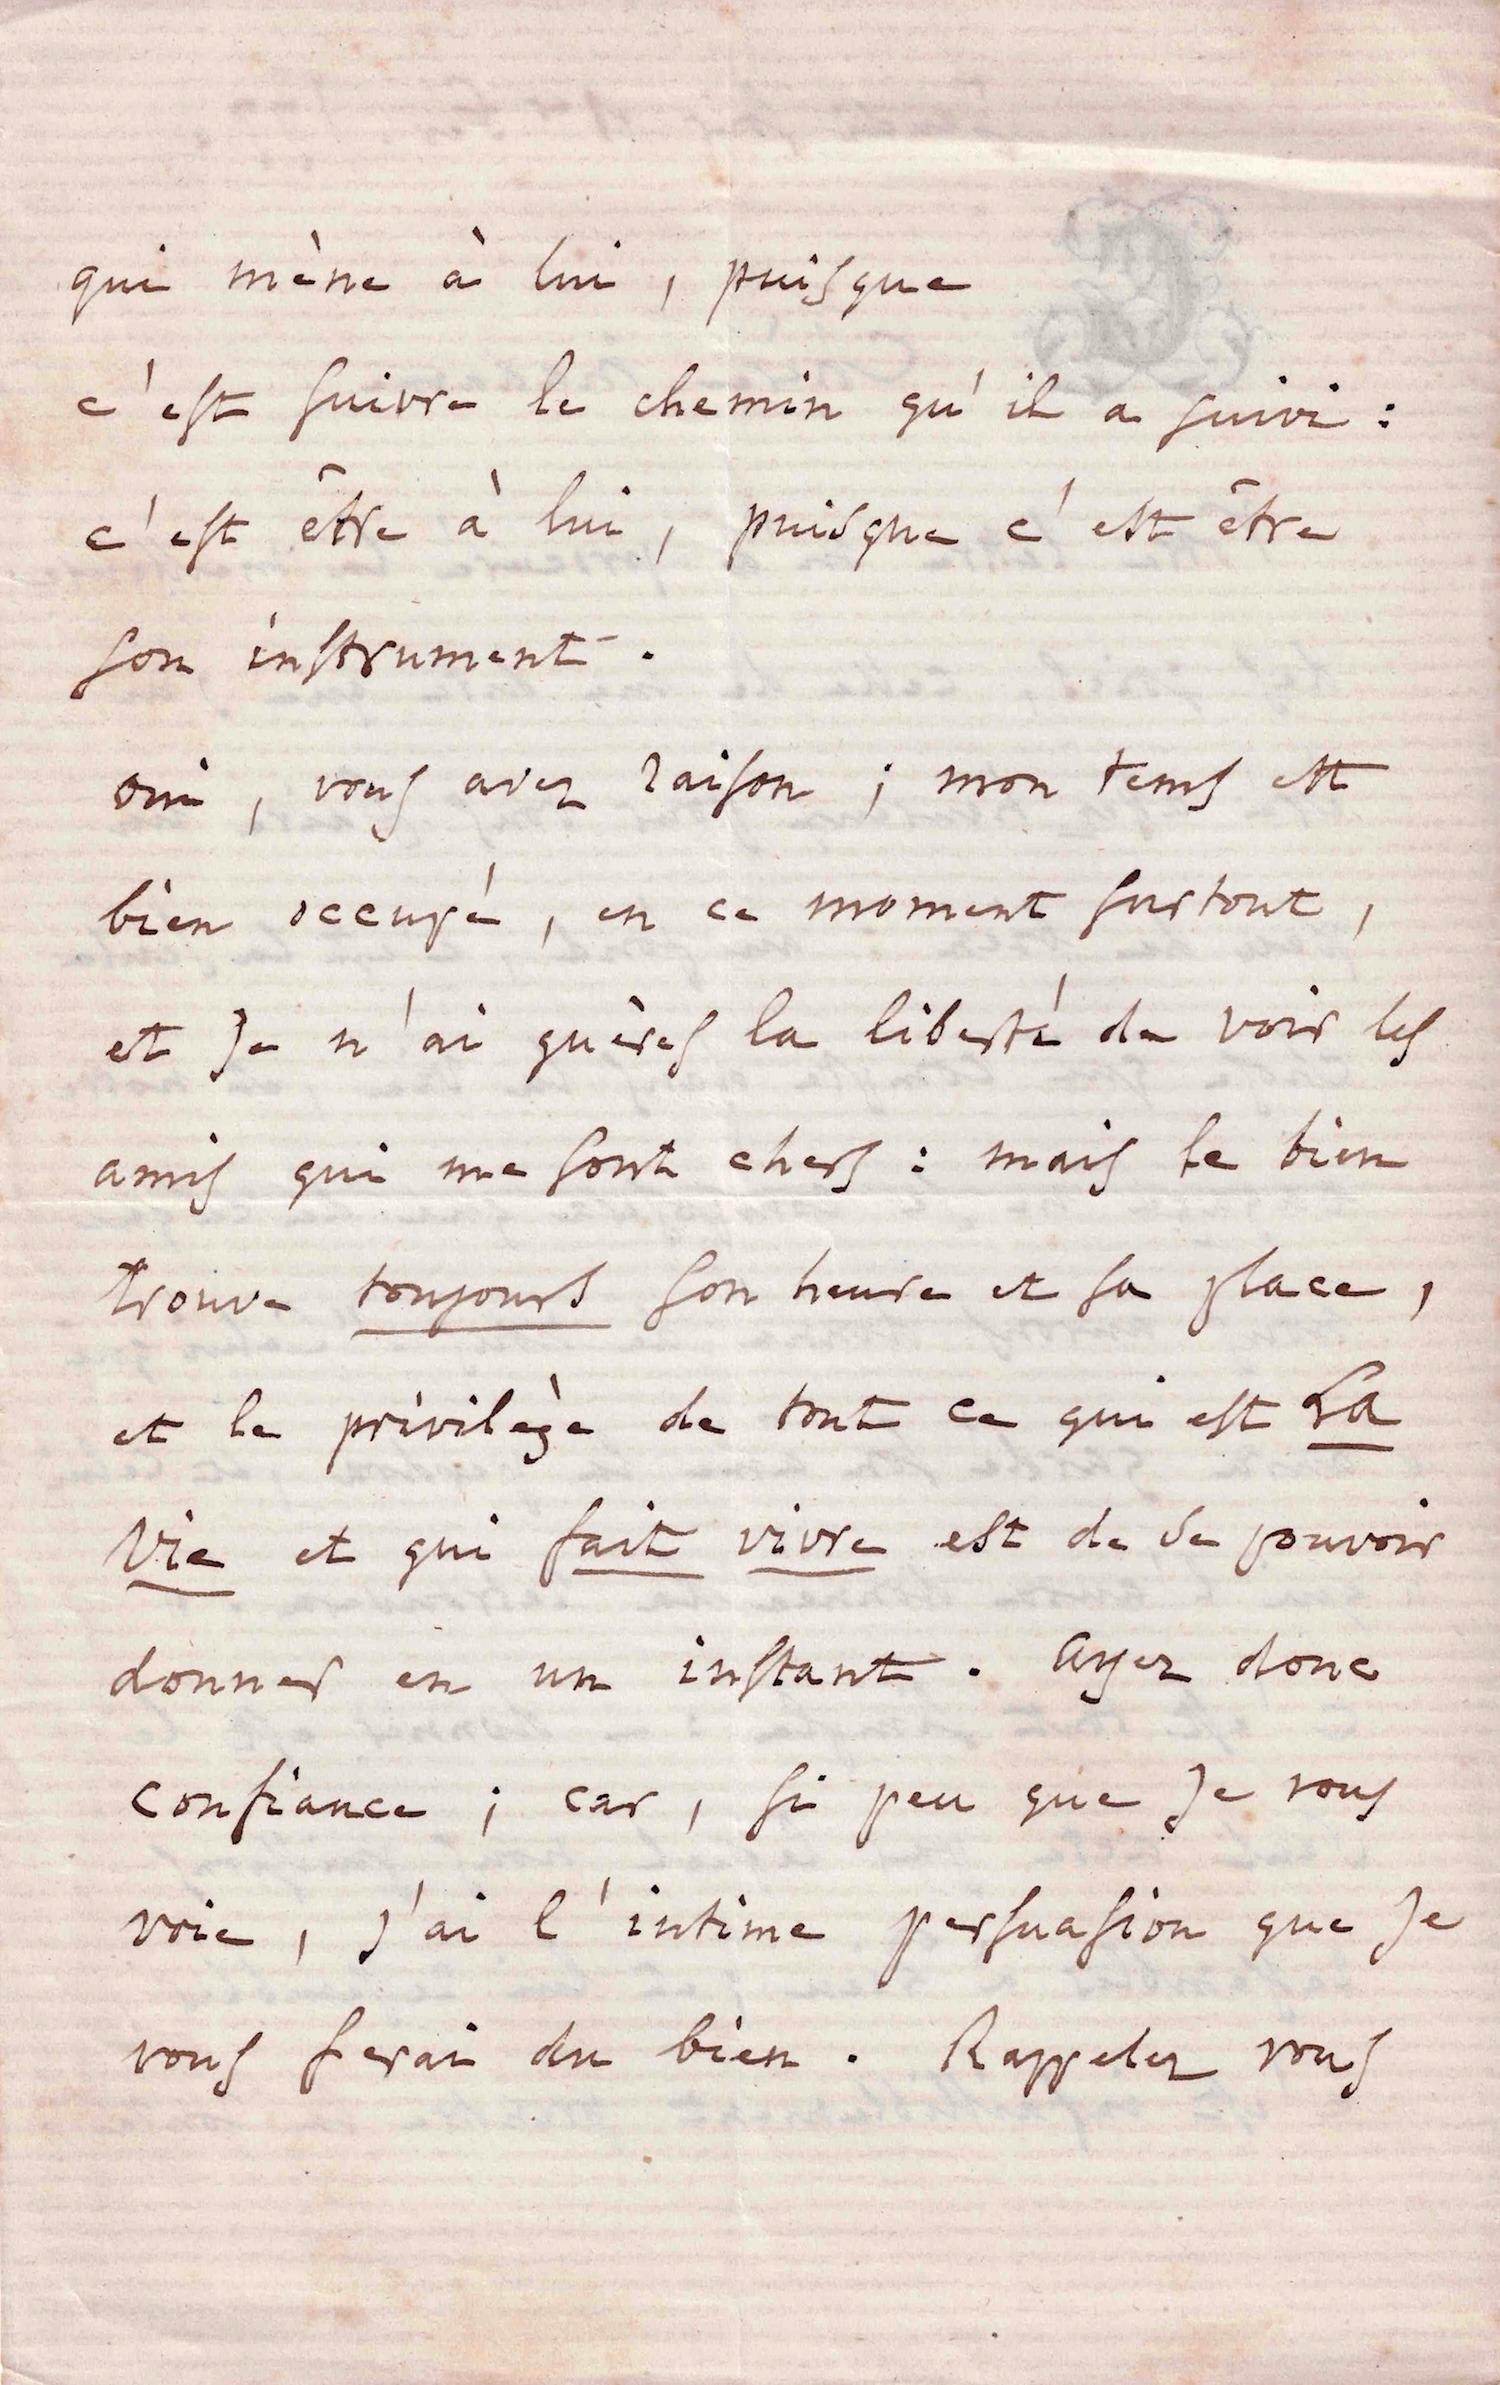 qui mène à lui, puisque
c'est suivre le chemin qu'il a suivi :
c'est être à lui, puisque c'est être
son instrument.
oui, vous avez raison ; mon tems est
bien occupé, en ce moment surtout,
et je n'ai guères la liberté de voir les
amis qui me sont chers : mais le bien
trouve toujours son heure et sa place,
et le privilège de tout ce qui est La
Vie et qui fait vivre est de se pouvoir
donner en un instant. Ayez donc
confiance ; car, si peu que je vous
voie, j'ai l'intime persuasion que je
vous ferai du bien. Rappelez vous